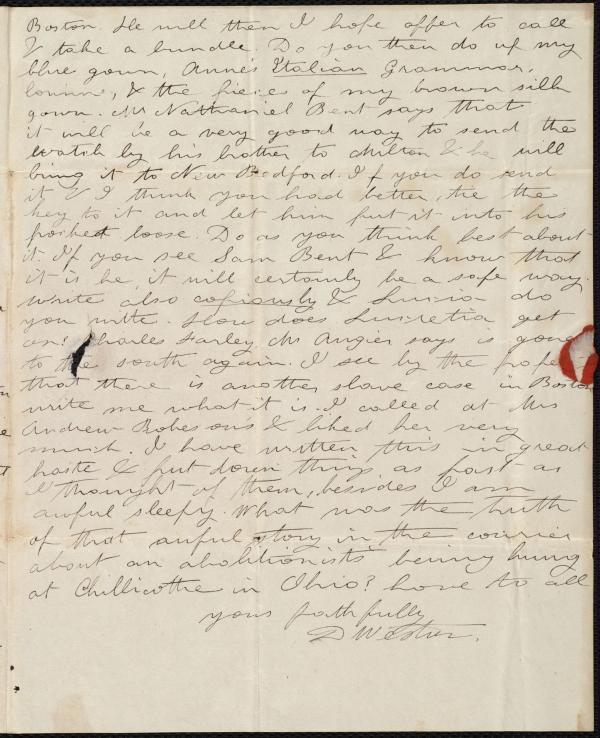 Boston. He will then I hope offer to call
& take a bundle. Do you then do up my
blue gown, Anne's Italian Grammar,
& the pieces of my brown silk
gown. Mr Nathaniel Bent says that
it will be a very good way to send the
watch by his brother to Milton & he will
bring it to New Bedford. If you do send
it & I think you had better, tie the
key to it and let him put it into his
pocket loose. Do as you think best about
it. If you see Sam Bent & know that
it is he, it will certainly be a safe way.
Write also copiously & Lucia do
you write. How does Lucretia get
on? Charles Farley Mr Angier says is gone
to the south again. I see by the paper
that there is another slave case in Boston
write me what it is. I called at Mrs
Andrew Robeson's & liked her very
much. I have written this in great
haste & put down things as fast as
I thought of them, besides I am
awful sleepy. What was the truth
of that awful story in the courier
about an abolitionists being hung
at Chillicothe in Ohio? love to all
yours faithfully
D Weston.